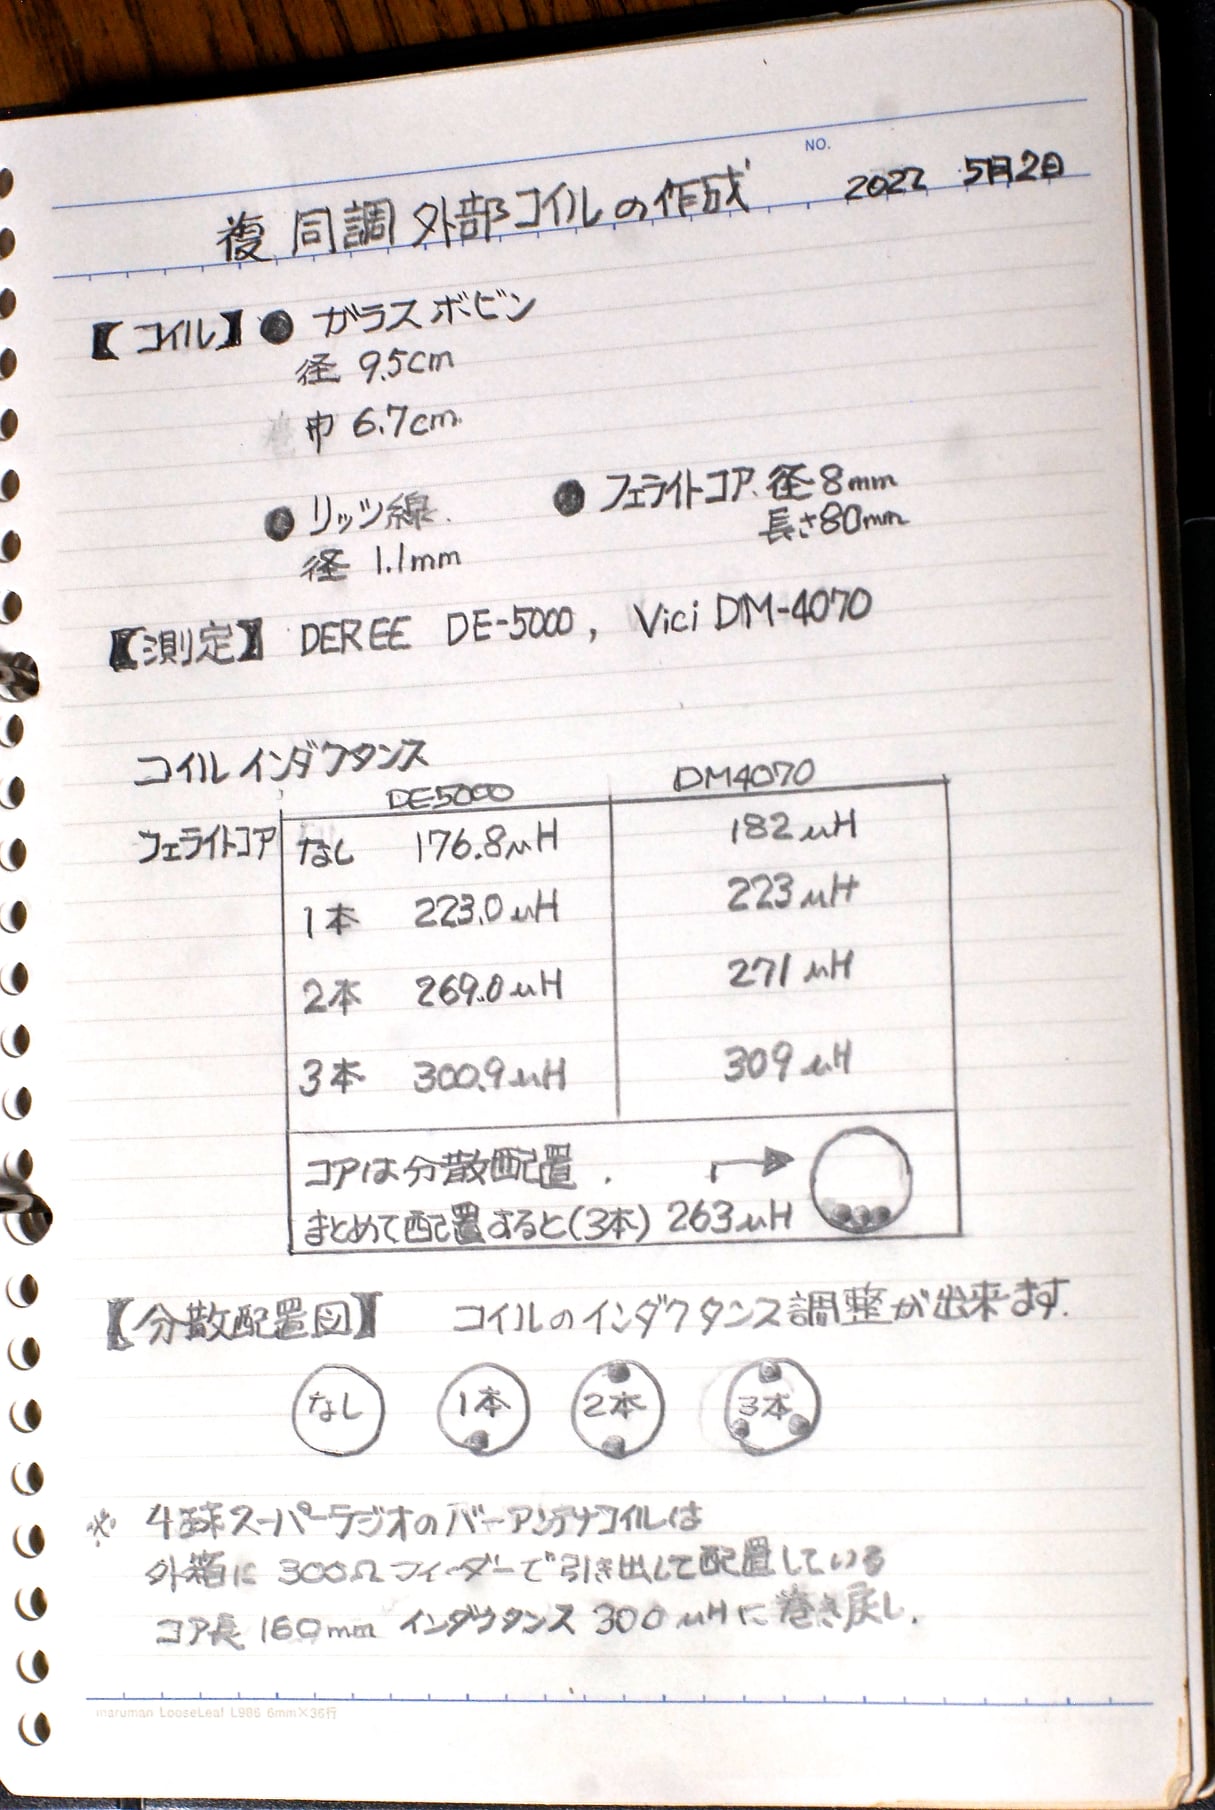 NO.
2022 5月2日
複同調外部コイルの作成
【コイル】● ガラスボビン
径 9.5cm
巾 6.7cm
● リッツ線.
径 1.1mm
● フェライトコア.径8mm
長さ80mm
【測定】 DEREE DE-5000, Vici DM-4070
コイルインダクタンス
DE5000 DM4070
フェライトコア なし 176.8μH 182μH
1本 223.0μH 223μH
2本 269.0μH 271μH
3本 300.9μH 309μH
コアは分散配置.
まとめて配置すると(3本) 263μH
【分散配置図】 コイルのインダクタンス調整が出来ます.
なし 1本 2本 3本
※ 4球スーパーラジオのバーアンテナコイルは
外箱に 300Ωフィーダーで引き出して配置している
コア長 160mm インダクタンス 300μHに巻き戻し.
maruman LooseLeaf L986 6mm×36行